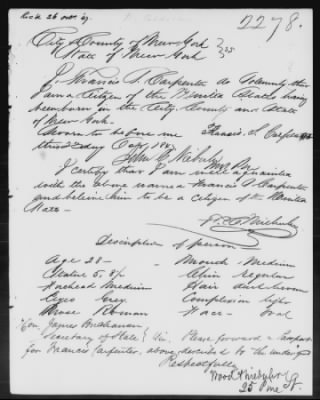 2278.
City & County of New York } ss
State of New York
I Francis S. Carpenter do solemnly swear
I am a Citizen of the United States having
been born in the City, County and State
of New York.
Sworn to before me Francis S. Carpenter
this 2d day
I certify that I am well acquainted
with the above named Francis S. Carpenter
and believe him to be a citizen of the United
States
Description of person
Age 28 — Mouth — Medium
Stature 5, 8 1/2 Chin regular
Forehead Medium Hair
Eyes Grey Complexion light
Nose Roman Face — Oval
Hon. James Buchanan
Secretary of State } Sir, Please forward a Passport
for Francis Carpenter, above described to the undersigned
Respectfully
25 Pine St.